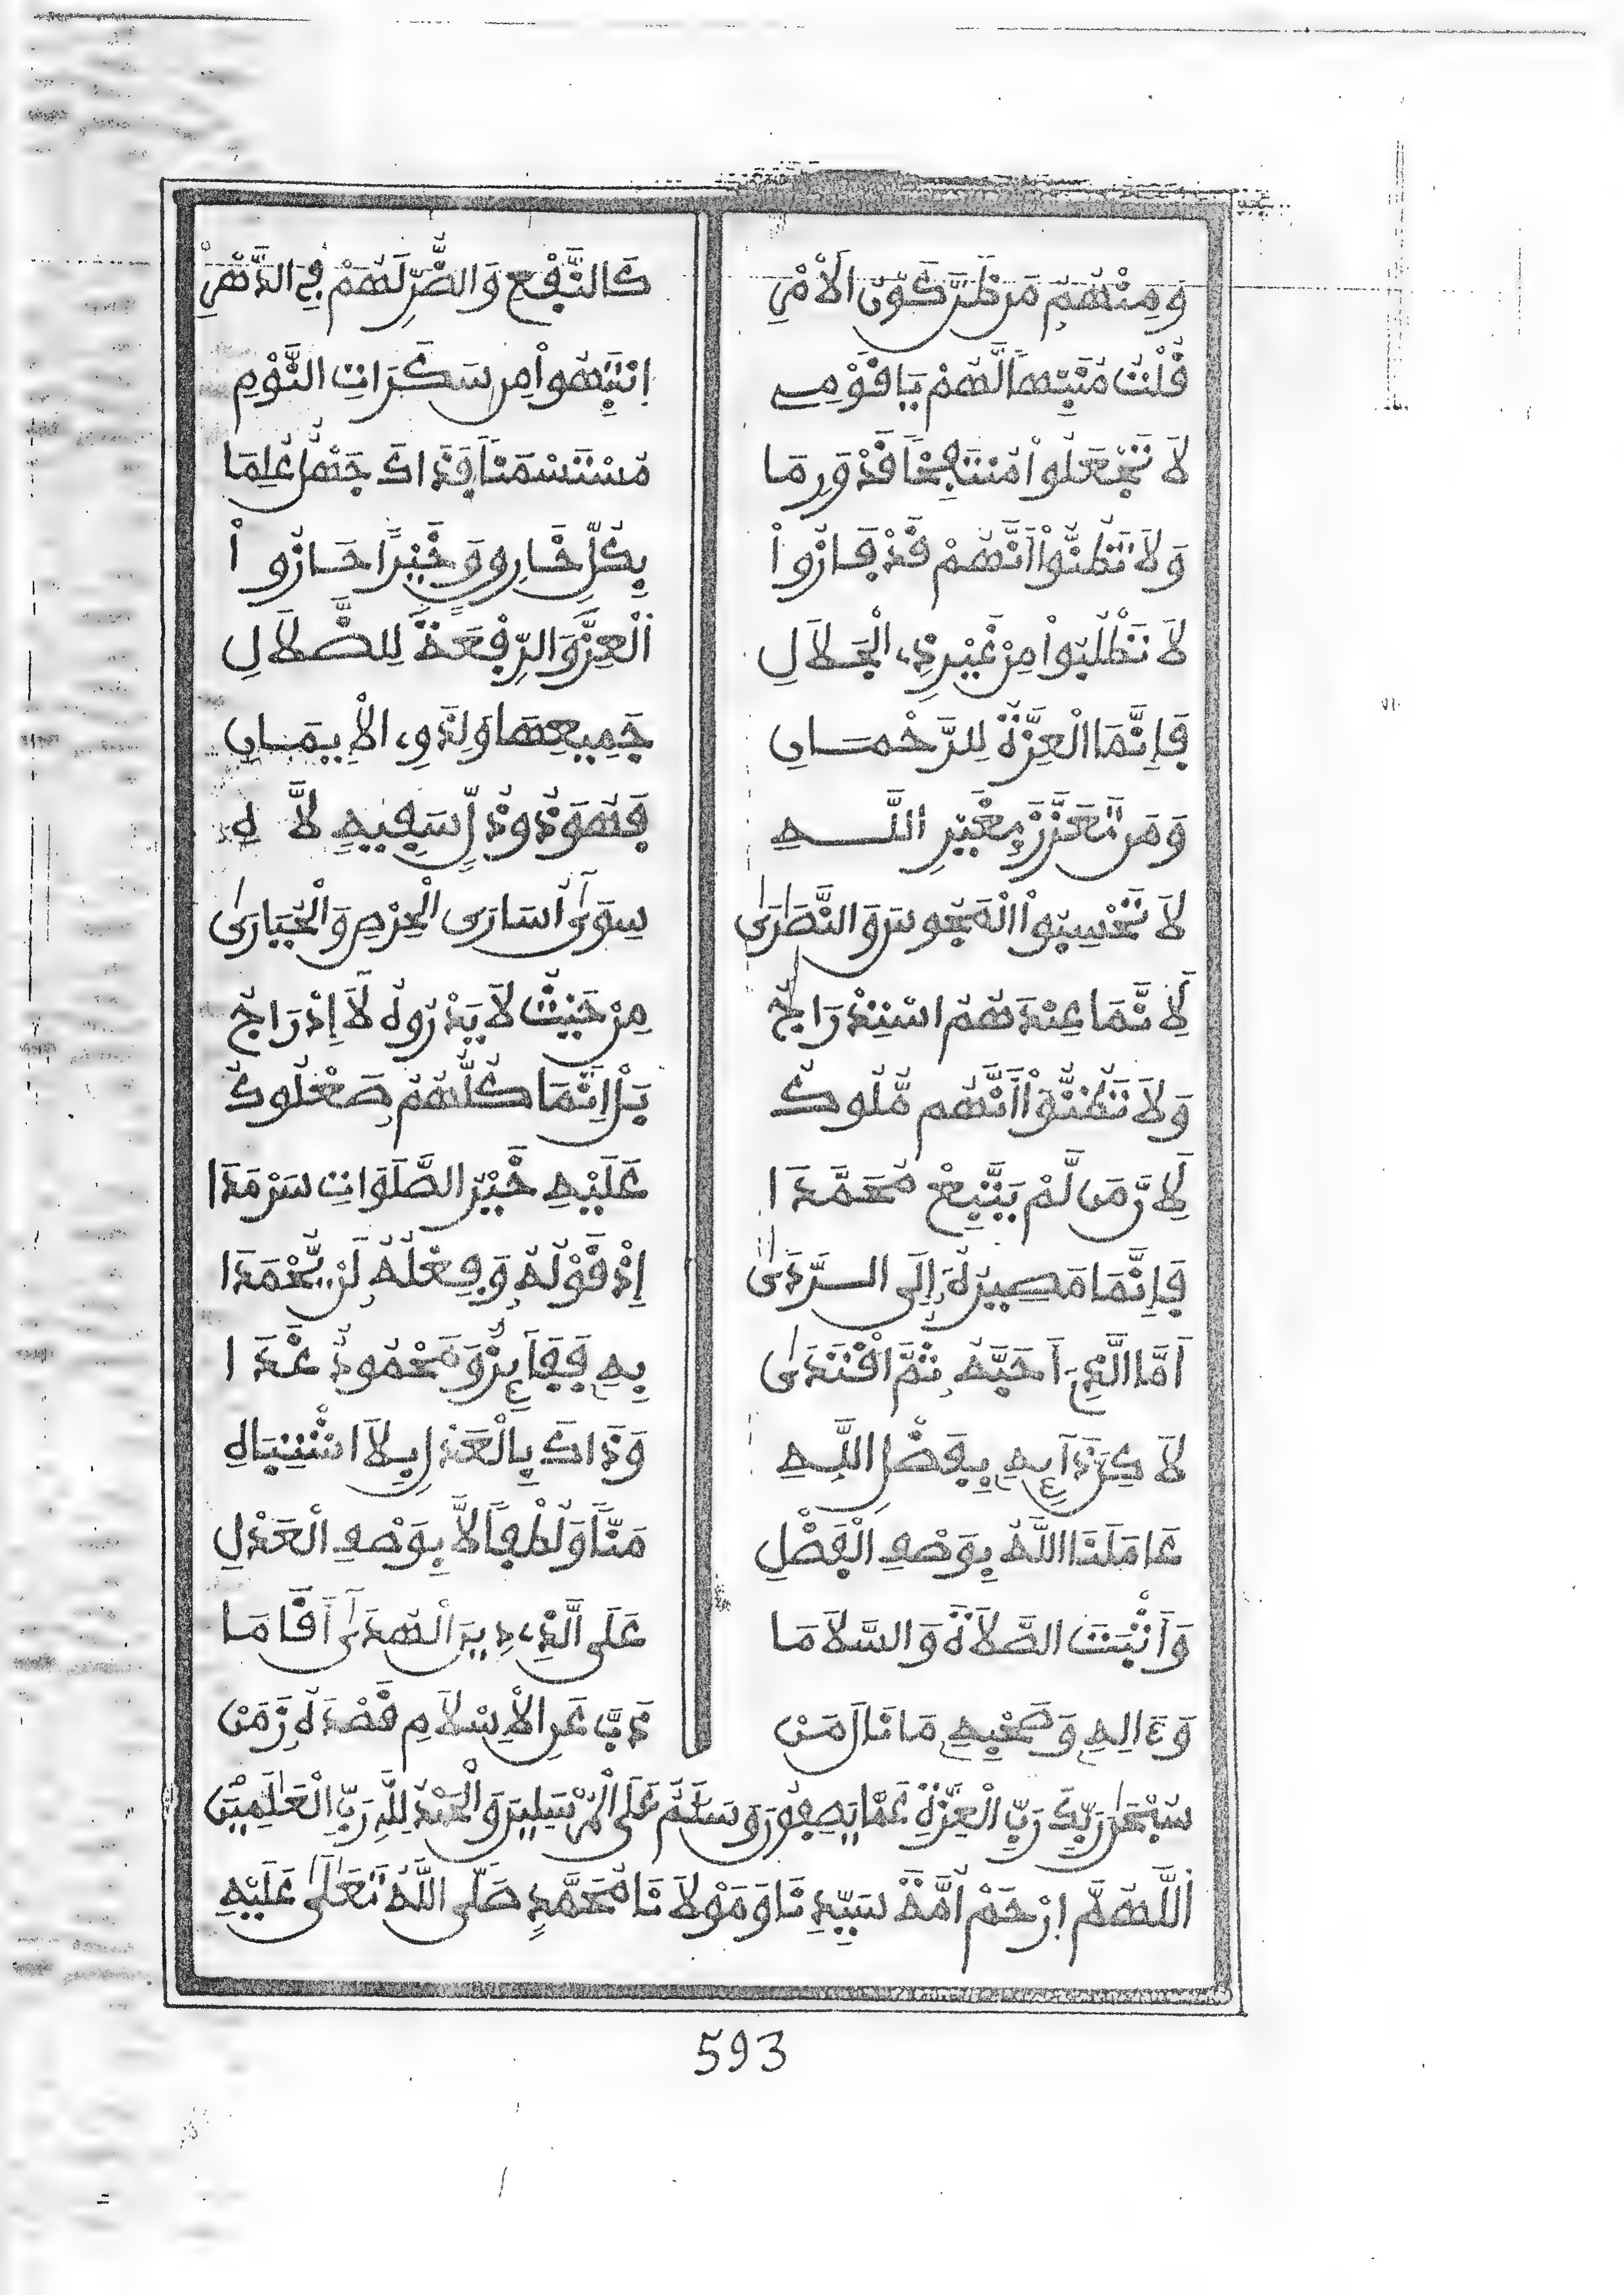 وَمِنْهُمُ مَن ظَنَّ كَوْنَ الْأَمْرِ كَالنَّفْعِ وَالضُّرِّ لَهُمْ فِي الدَّهْرِ
قُلْتُ مُنَبِّهاً لَّهُمْ يَا قَوْمِي اِنْتَبِهُواْ مِن سَكَرَاتِ النَّوْمِ
لَا تَجْعَلُواْ مُنتَفِخًا قَدْ وَرِمَا مُسْتَسْمَنًا فَذَاكَ جَهْلٌ عُلِمَا
وَلَا تَظُنُّواْ أَنَّهُمْ قَدْ فَازُواْ بِكُلِّ خَارِقٍ وَخَيْراً حَازُواْ
لَا تَطْلُبُواْ مِنْ غَيْرِ ذِي الْجَلَالِ اَلْعِزَّ وَالرِّفْعَةَ لِلضَّلَالِ
فَإِنَّمَا الْعِزَّةُ لِلرَّحْمَانِ جَمِيعِهَا وَلِذَوِي الْإِيمَانِ
وَمَن تَعَزَّزَ بِغَيْرِ اللَّهِ فَهُوَ ذُو ذُلٍّ سَفِيهٍ لَّاهِ
لَا تَحْسِبُواْ الْمَجُوسَ وَالنَّصَارَى سِوَى أُسَارَى الْحِزْيِ وَالْحَيَارَى
لِأَنَّمَا عِنْدَهُمُ اسْتِدْرَاجُ مِنْ حَيْثُ لَا يَدْرُوهُ لَا إِدْرَاجُ
وَلَا تَظُنُّواْ أَنَّهُم مُّلُوكُ بَلْ إِنَّمَا كُلُّهُمُ صَعْلُوكُ
لِأَنَّ مَن لَّمْ يَتَّبِعْ مُحَمَّدَا عَلَيْهِ خَيْرُ الصَّلَوَاتِ سَرْمَدَا
فَإِنَّمَا مَصِيرُهُ إِلَى الرَّدَى إِذْ قَوْلُهُ وَفِعْلُهُ لَنْ يُّحْمَدَا
أَمَّا الَّذِي أَحَبَّهُ ثُمَّ اقْتَدَى بِهِ فَفَائِزٌ وَمَحْمُودٌ غَدَا
لَاكِنَّ ذَا بِهِ بِفَضْلِ اللَّهِ وَذَاكَ بِالْعَدْلِ بِلَا اشْتِبَاهِ
عَامَلَنَا اللَّهُ بِوَصْفِ الْفَضْلِ مَنًّا وَلُطْفاً لَا بِوَصْفِ الْعَدْلِ
وَأَثْبَتَ الصَّلَاةَ وَالسَّلَامَا عَلَى الَّذِي دِينَ الْهُدَى أَقَامَا
وَءَالِهِ وَصَحْبِهِ مَا نَالَ مَنْ ذَبَّ عَنِ الْإِسْلَامِ قَصْدَهُ زَمَنْ
سُبْحَٰنَ رَبِّكَ رَبِّ الْعِزَّةِ عَمَّا يَصِفُونَ وَسَلَٰمٌ عَلَى الْمُرْسَلِينَ وَالْحَمْدُ لِلَّهِ رَبِّ الْعَٰلَمِينَ
اَللَّهُمَّ ارْحَمْ أُمَّةَ سَيِّدِنَا وَمَوْلَانَا مُحَمَّدٍ صَلَّى اللَّهُ تَعَٰلَى عَلَيْهِ
593